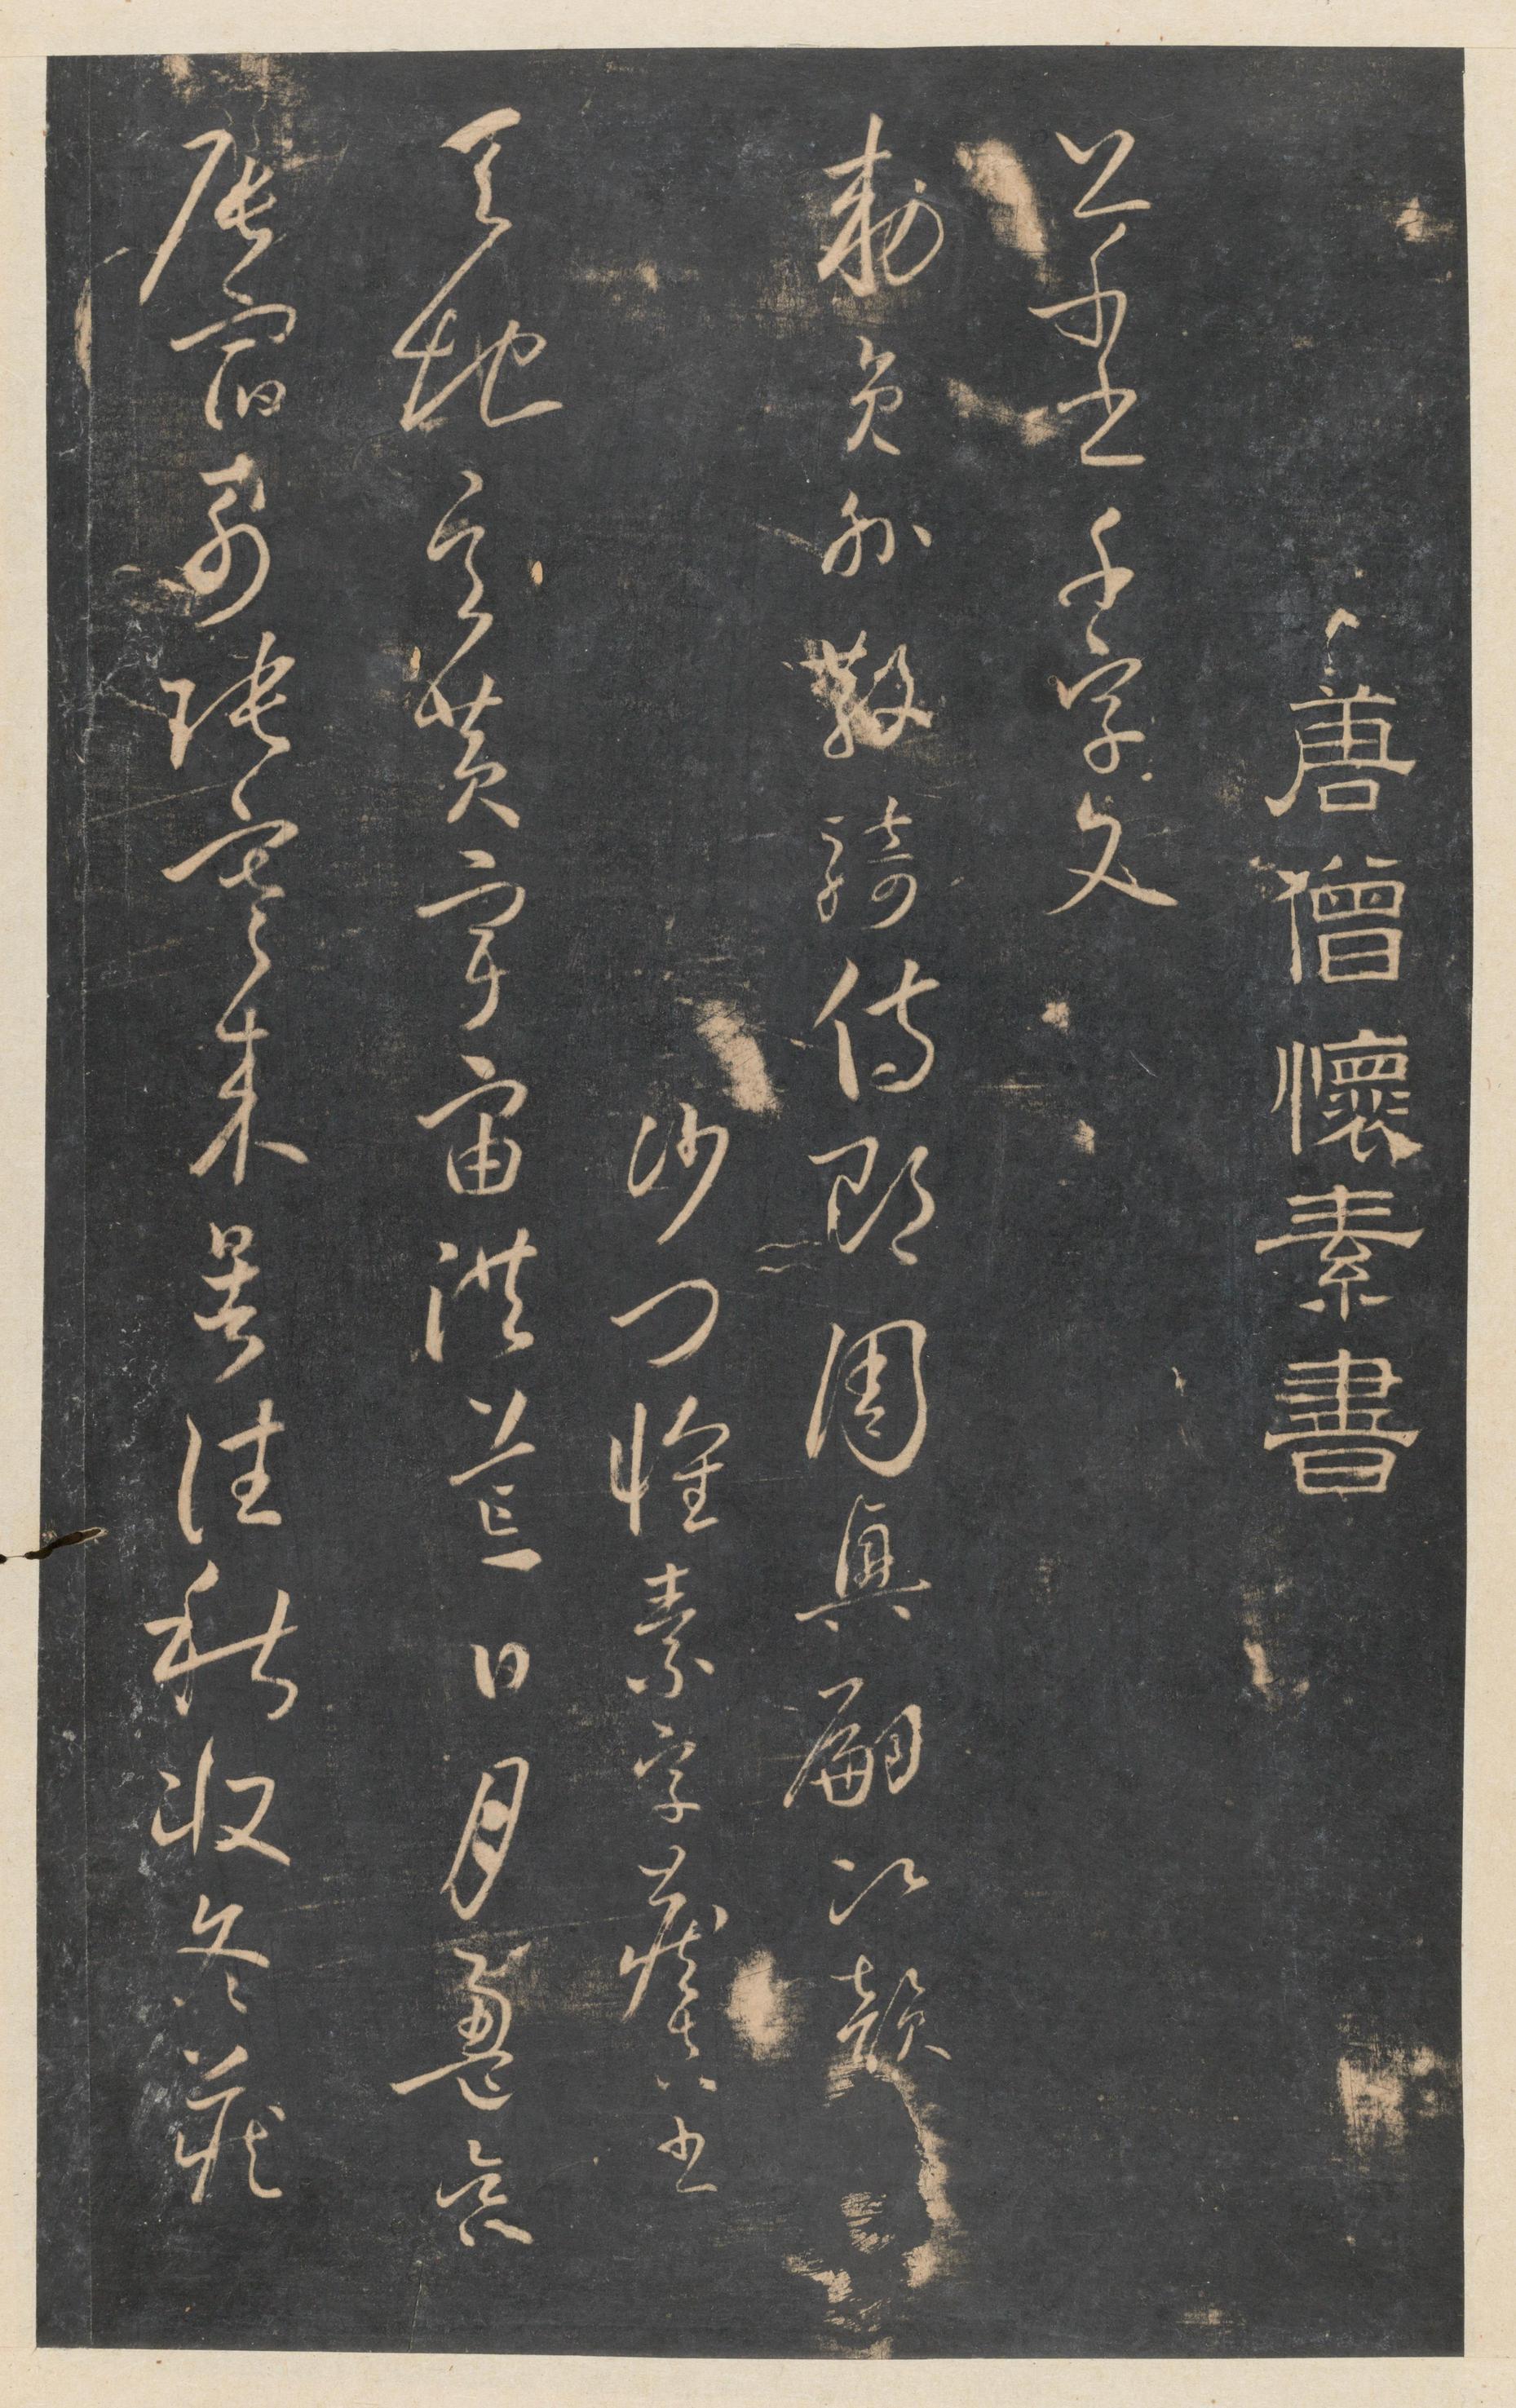 唐僧懷素書
草書千字文
勅員外散騎侍郎周興嗣次韻
沙門懷素字藏真書
天地玄黃宇宙洪荒日月盈昃
辰宿列張寒來暑往秋收冬藏